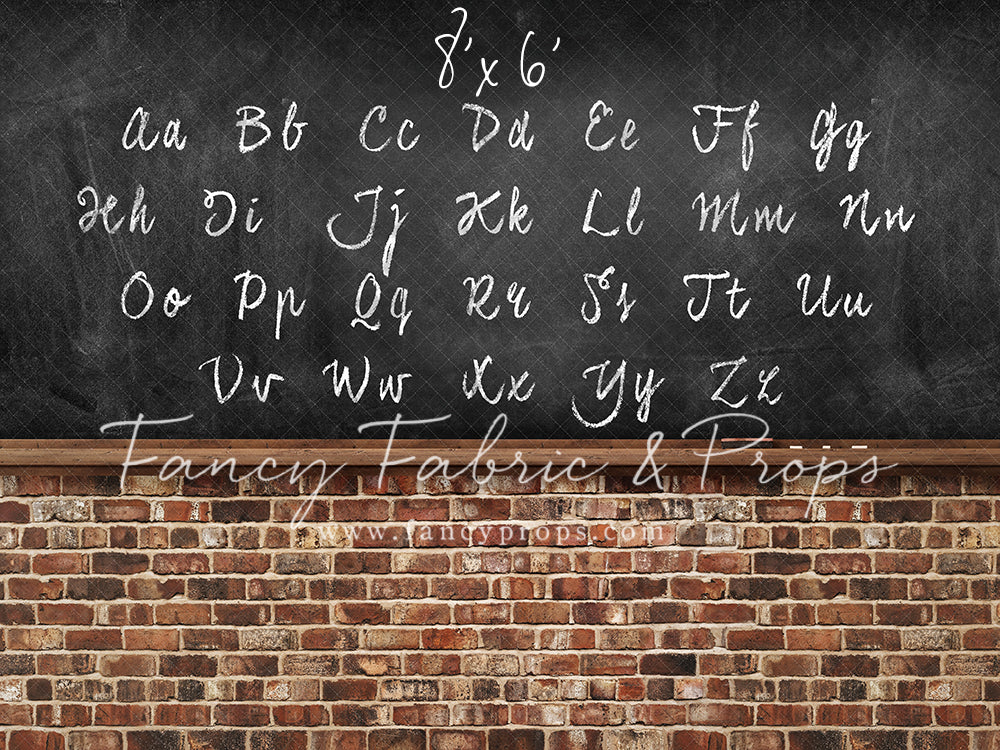 8' x 6'
Aa Bb Cc Dd Ee Ff Gg
Hh Ii Jj Kk Ll Mm Nn
Oo Pp Qq Rr Ss Tt Uu
Vv Ww Xx Yy Zz
Fancy Fabric & Props
www.fancyprops.com